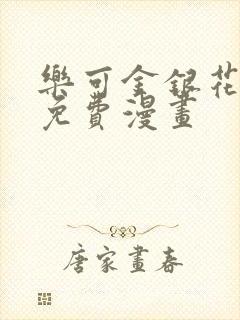 樂可金銀花
免費漫畫
唐家畫春